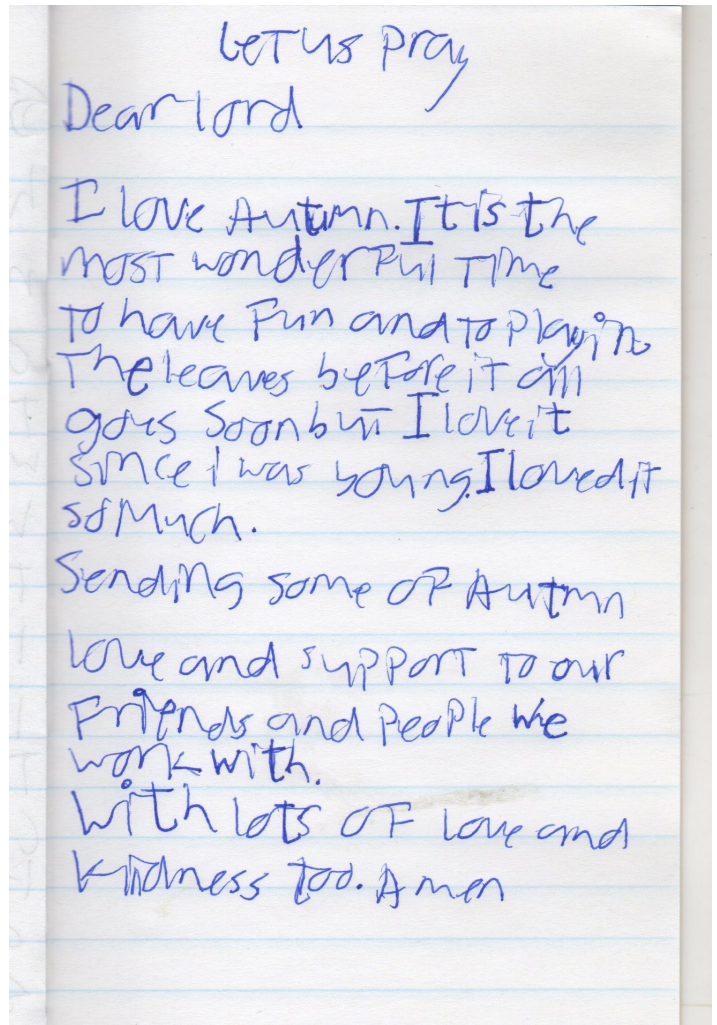 Let us pray
Dear lord
I love Autumn. It is the
most wonderful time
to have fun and to play in
the leaves before it all
goes soon but I love it
since I was young. I loved it
so much.
Sending some of Autmn
love and support to our
friends and people we
work with.
With lots of love and
kindness too. Amen